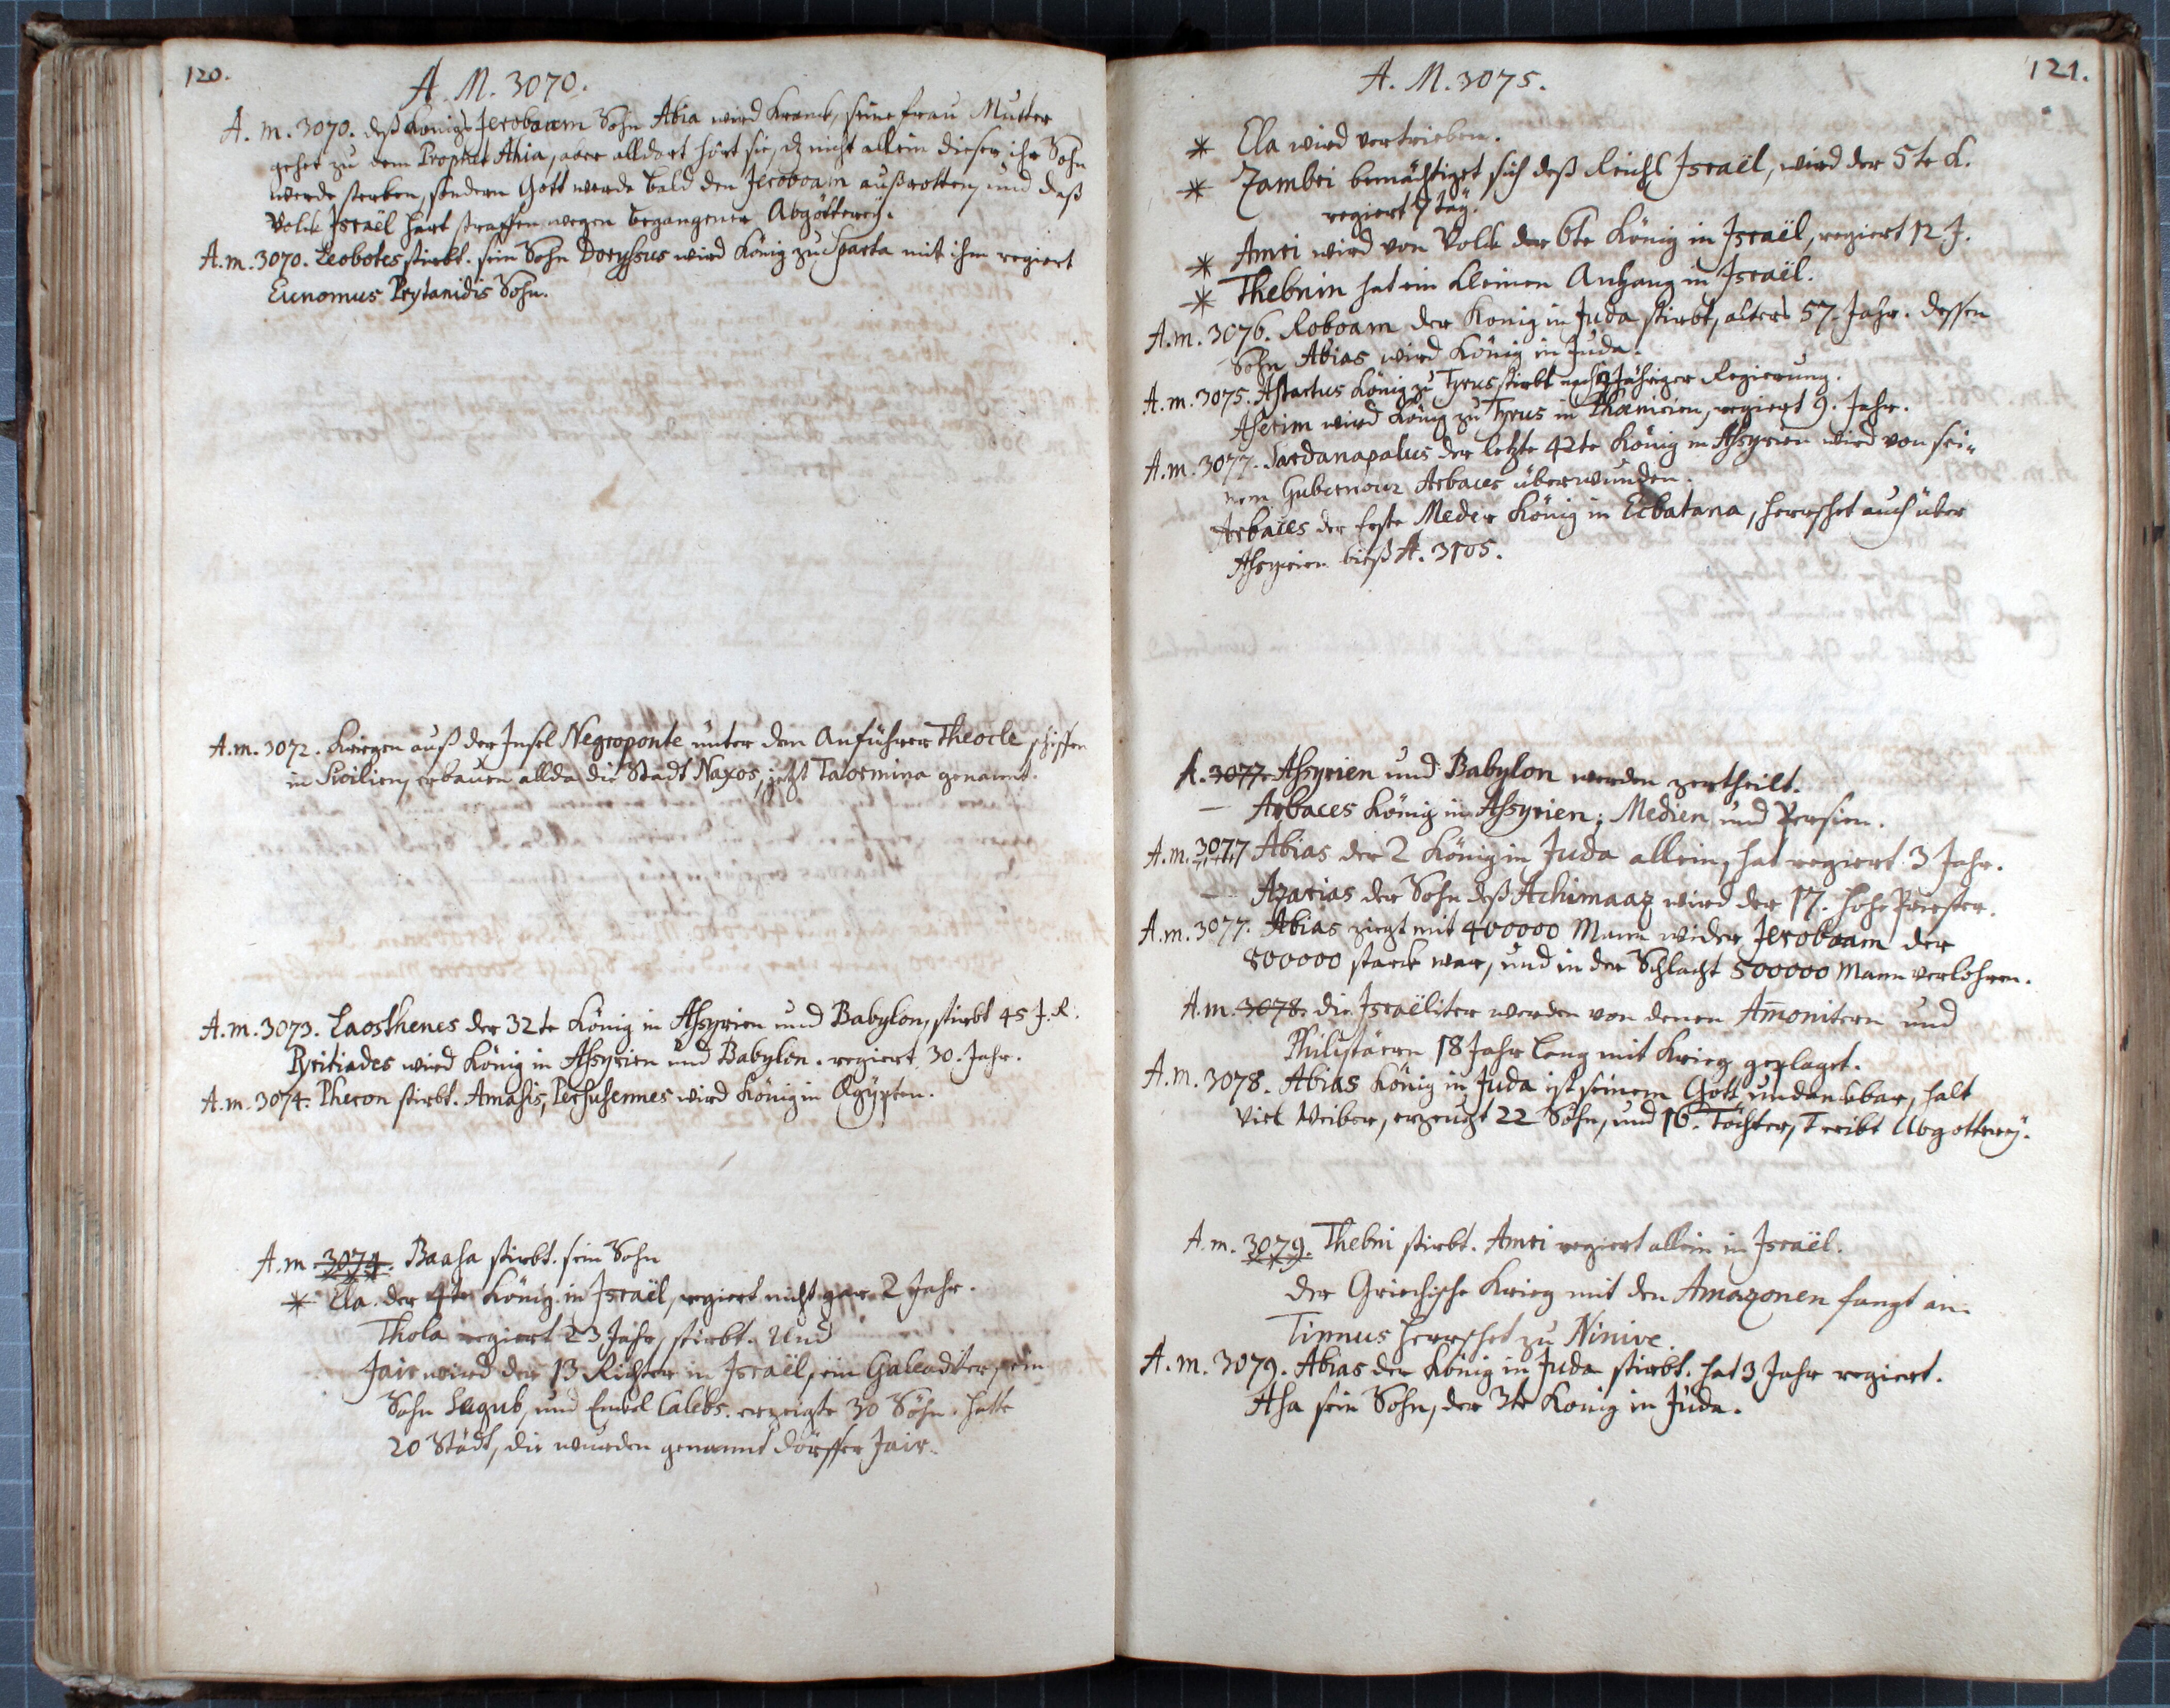 120.
A. M. 3070.
A. m. 3070. deß Königs Jeroboam Sohn Abia wird Kranck, seine frau Mutter
gehet zu dem Prophet Ahia, aber alldort hört sie, dz nicht allein dieser ihr Sohn
werde sterben, sondern Gott werde bald den Jeroboam außrotten, und daß
Volck Israël hart straffen wegen begangener Abgötterey.
A. m. 3070. Leobotes stirbt. sein Sohn Doryssus wird König zu Sparta mit ihm regiert
Eunomus Prytanidis Sohn.
A. m. 3072. Kriegen auß der Insel Negroponte unter dem Anführer Theocle schiffen
in Sicilien, erbauen allda die Stadt Naxos, jetzt Taormina genannt.
A. m. 3073. Laosthenes der 32te König in Assyrien und Babylon, stirbt 45 J. R.
Pyritiades wird König in Assyrien und Babylon. regiert 30. Jahr.
A. m. 3074. Pheron stirbt. Amasis, Persusennes wird König in Ægypten.
A. m. 3074. Baasa stirbt. sein Sohn
* Ela. der 4te König in Israël, regiert nicht gar 2 Jahr.
Thola regiert 23 Jahr, stirbt. Und
Jair wird der 13 Richter in Israël, ein Galeaditer, ein
Sohn Segub, und Enckel Calebs. erzeigte 30 Söhn. hatte
20 Städt, die wurden genannt dörffer Jair.
121.
A. M. 3075.
* Ela wird vertrieben.
* Zambri bemächtiget sich deß Reichs Israël, wird der 5te K.
regiert 7 täg.
* Amri wird von Volck der 6te König in Israël, regiert 12 J.
* Thebnin hat ein kleinen Anhang in Israël.
A. m. 3076. Roboam der Konig in Juda stirbt, alters 57. Jahr. dessen
Sohn Abias wird König in Juda.
A. m. 3075. Astartus König zu Tyrus stirbt nach Jähriger Regierung.
Aserim wird König zu Tyrus in Phœnicien, regiert 9. Jahr.
A. m. 3077. Sardanapalus der letzte 42te König in Assyrien wird von sei-
nem Gubernour Arbaces überwunden.
Arbaces der Erste Meder König in Ecbatana, herrschet auch über
Assyrien biß A. 3105.
A. 3077. Assyrien und Babylon werden zertheilt.
— Arbaces König in Assyrien, Medien und Persien.
A. m. 3077 Abias der 2 König in Juda allein, hat regiert 3 Jahr.
— Azarias der Sohn deß Achimaaz wird der 17. hohe Priester.
A. m. 3077. Abias ziegt mit 400000 Mann wider Jeroboam der
800000 starck war, und in der Schlacht 500000 Mann verlohren.
A. m. 3078. die Israëliter werden von denen Am̄onitern und
Philistäern 18 Jahr lang mit Krieg geplaget.
A. m. 3078. Abias König in Juda ist seinem Gott undanckbar, halt
viel Weiber, erzeugt 22 Söhn, und 16. Töchter, treibt Abgotterey.
A. m. 3079. Thebni stirbt. Amri regiert allein in Israël.
Der Griechische Krieg mit den Amazonen fangt an.
Tinnus herrschet zu Ninive.
A. m. 3079. Abias der König in Juda stirbt. hat 3 Jahr regiert.
Asa sein Sohn, der 3te König in Juda.